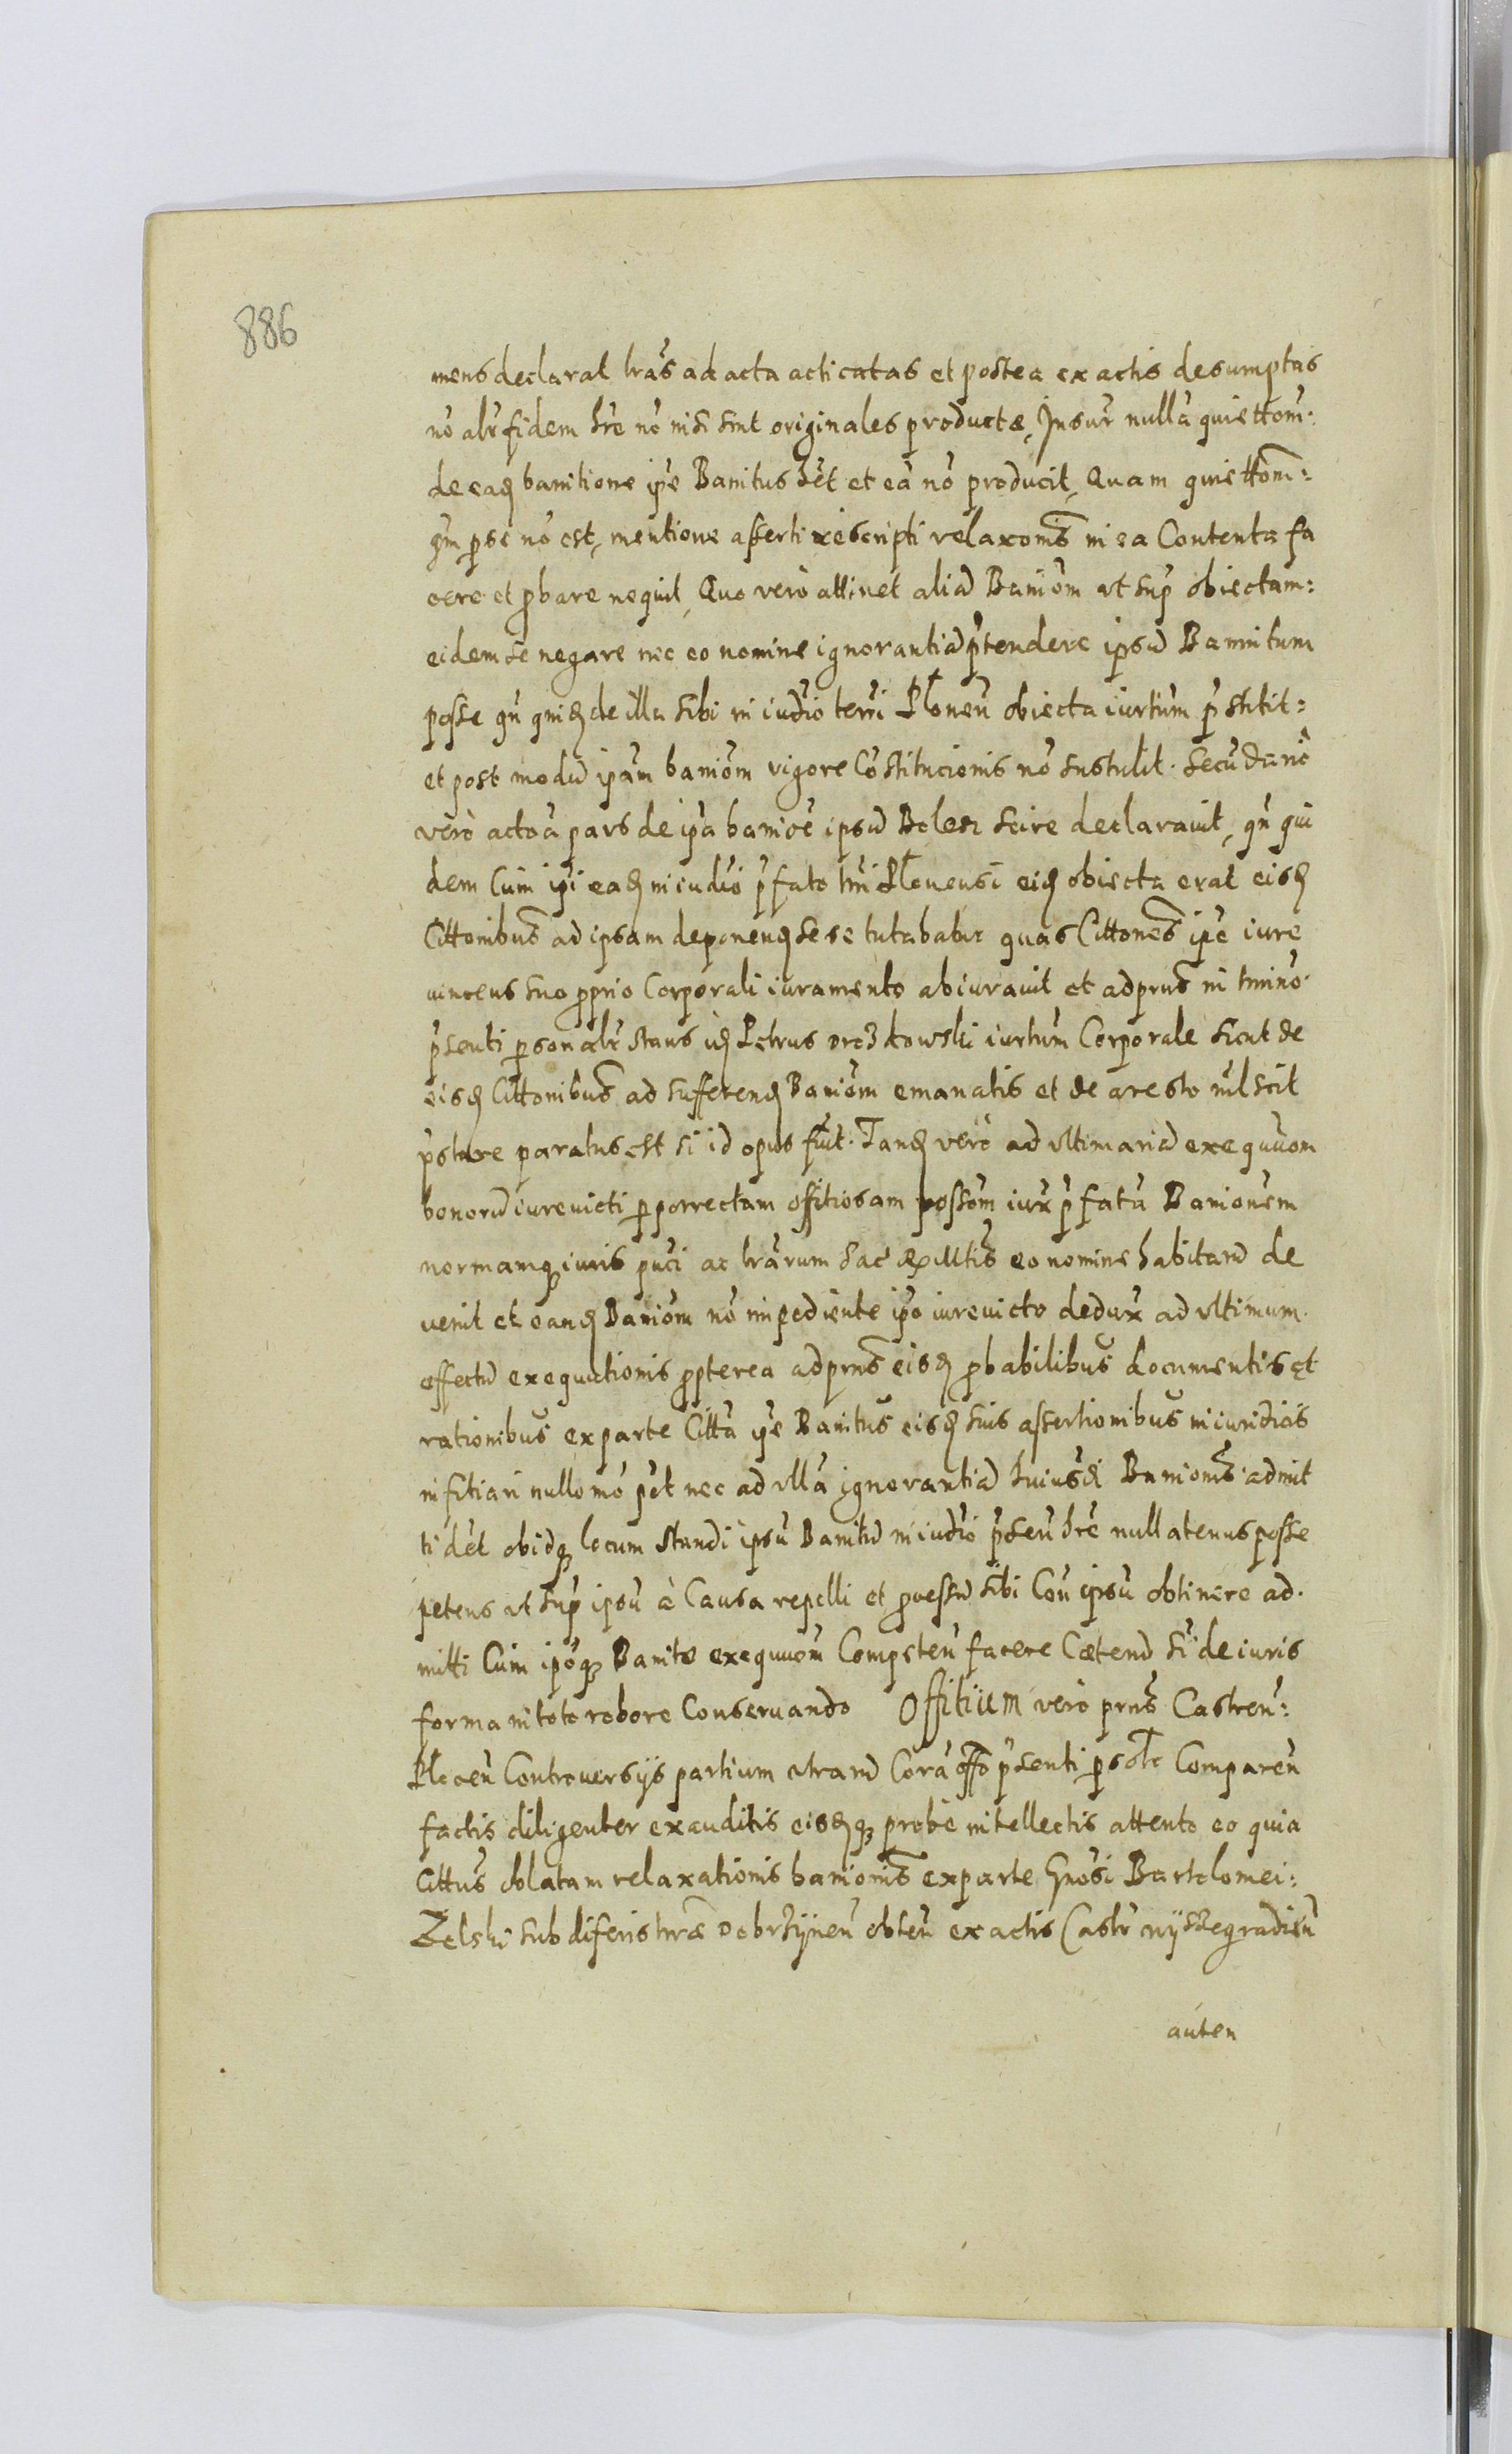 886
mens declarat lrãs ad acta acticatas et postea ex actis desumptas
nõ alr̃ fidem hr̃e nõ nisi sint originales productæ, Insur̃ nullã quiettom̃.
de eaq̃ banitione ip̃e Banitus hẽt et eã nõ producit, Quam quiettom̃:
qm̃ p se nõ est, mentione asserti rescripti relaxom̃s in ea Contenta fa
cere et pbare nequit, Quo verò attinet aliã Baniom̃ ut sup̃ obiectam:
eidem se negare nec eo nomine ignorantiã p̃tendere ipsũ Bannitum
posse qñ quiq̃ de illa sibi in iudio̓ terri̓ Płonen̓ obiecta iurtum̃ p̃stitit:
et post modũ ip̃am baniom̃ vigore Cõstitucionis nõ sustulit. Secũdariò
verò actoã pars de ip̃a banioẽ ipsũ Bolesz scire declarauit, qñ qui
dem Cum ip̃i eaq̃ in iudio̓ p̃fato tr̃ri Płonensi eiq̃ obiecta erat eisq̃
Cittonibus̃ ad ipsam deponenq̃ sese tutabatur quas Cittones̃ ip̃e iure
uincens suo pprio Corporali iuramento abiurauit et ad prñs in tr̃mino
p̃senti psonalr̃ stans iq̃ Petrus Drozdowski iurtum̃ Corporale sicut de
eisq̃ Cittonibus̃ ad sufferenq̃ Baniom̃ emanatis et de aresto nil̓ scit
p̃stare paratus est si id opus fuit. Tanq̃ verò ad vltimariã exequuom
bonorũ iureuicti pporrectam offitiosam possom̃ iux̃ p̃fatã Banionem
normamq̃ iuris pu̓ci ac lrãrum hac ex ultis̃ eo nomine habitarũ de
uenit et eanq̃ Baniom̃ nõ impediente ip̃o iureuicto dedux̃ ad vltimum.
effectũ exequutionis ppterea ad prñs eisq̃ pbabilibus̃ documentis et
rationibus̃ ex parte Cittã ip̃e Banitus̃ eisq̃ suis assertionibus̃ in iuridicis
infitiari nullo mõ põt nec ad vllã ignorantiã huiusq̃i Baniom̃s admit
ti dẽt obidq̃ locum standi ipsũ Banitũ in iudio̓ p̃sen̓ hr̃e nullatenus posse
petens ut sup̃ ipsũ à Causa repelli et pcessũ sibi Cou̓ ipsũ obtinere ad.
mitti Cum ip̃oq̃ Banito exequuom̃ Competen̓ facere Cætend̃ si̓ de iuris
forma in toto robore Conseruando Offitium verò prñs Castren̓:
Płocen̓ Controuersÿs partium utrarũ Corã offo̓ p̃senti psolr̃ Comparen̓
factis diligenter exauditis eisq̃q̃ probè intellectis attento eo quia
Cittus̃ oblatam relaxationis banionis̃ ex parte Gnosi̓ Bartolomei:
Zelski Subdiferis tr̃ræ Dobrzÿnen̓ obten̓ ex actis Castr̃ wÿszegradien̓
auten